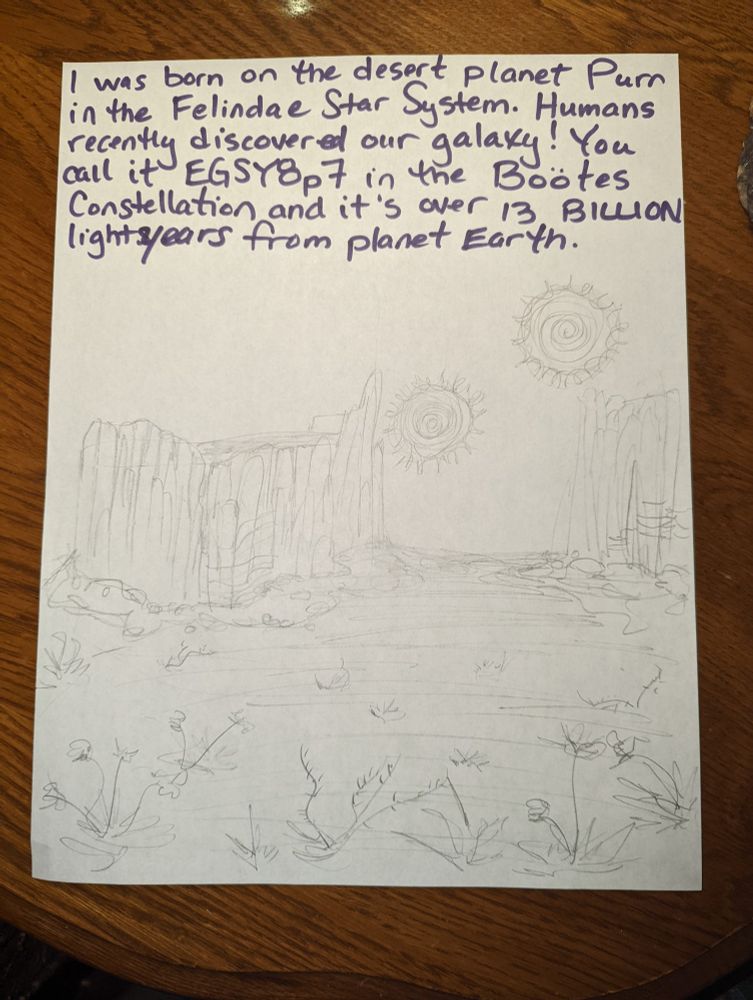 I was born on the desert planet Purn
in the Felindae Star System. Humans
recently discovered our galaxy! You
call it EGSY8p7 in the Boötes
Constellation and it's over 13 BILLION
lightsyears from planet Earth.